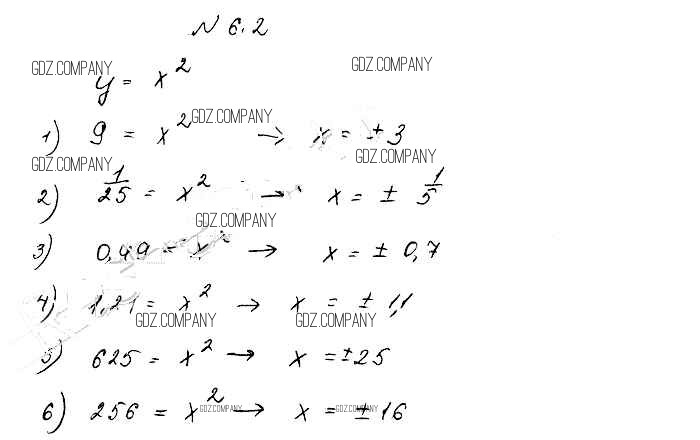 № 6.2
GDZ.COMPANY GDZ.COMPANY
y = x²
GDZ.COMPANY
1) 9 = x² → x = ± 3
GDZ.COMPANY GDZ.COMPANY
2) 1/25 = x² → x = ± 1/5
GDZ.COMPANY
3) 0,49 = x² → x = ± 0,7
4) 1,21 = x² → x = ± 1,1
GDZ.COMPANY GDZ.COMPANY
5) 625 = x² → x = ± 25
6) 256 = x² → x = ± 16
GDZ.COMPANY GDZ.COMPANY